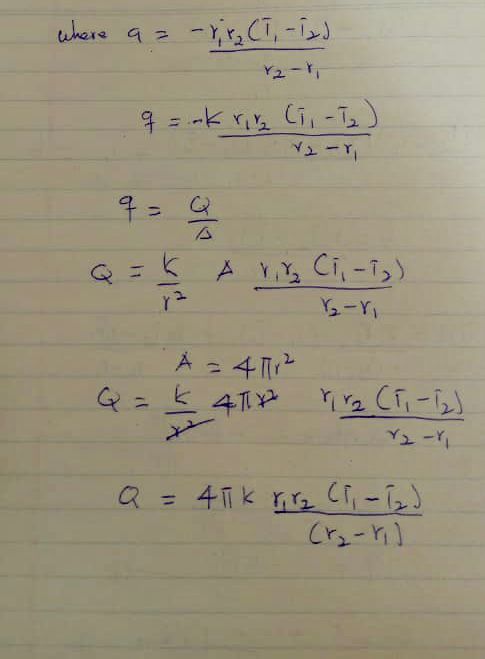 where a = -r₁r₂(T₁-T₂)
r₂-r₁
q = -k r₁r₂ (T₁-T₂)
r₂-r₁
q = Q
A
Q = k/r² A r₁r₂ (T₁-T₂)
r₂-r₁
A = 4πr²
Q = k/r² 4πr² r₁r₂ (T₁-T₂)
r₂-r₁
Q = 4πk r₁r₂ (T₁-T₂)
(r₂-r₁)